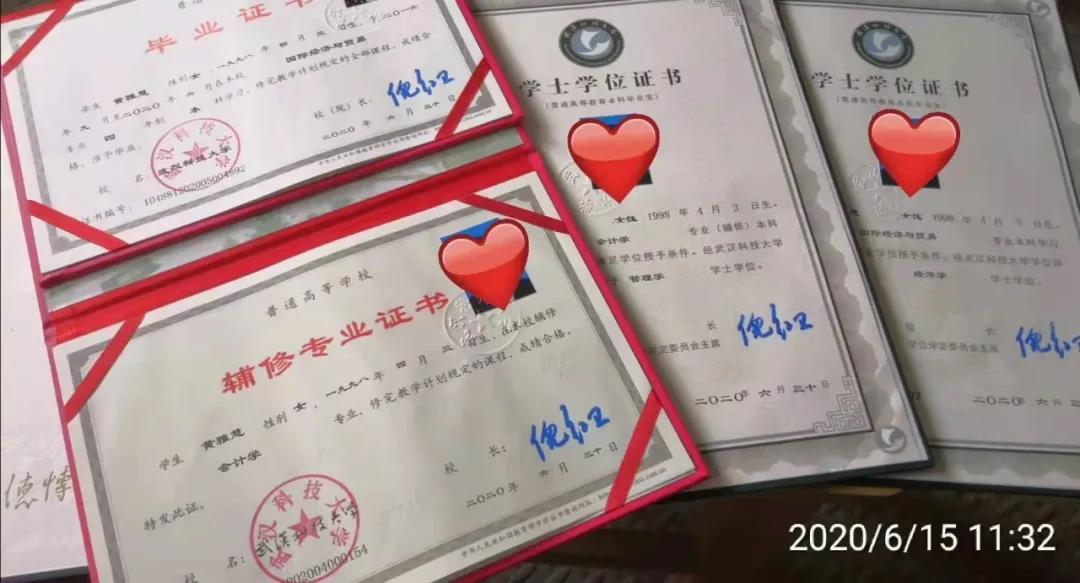 普通
毕业证书
学生 黄雅慧 性别 女，一九九八 年 四 月 三 日生，于二〇一六
年 九 月至二〇二〇 年 六 月在本校 国际经济与贸易
专业 四 年制 本 科学习，修完教学计划规定的全部课程，成绩合
格，准予毕业。
校 名：武汉科技大学
校（院）长：
二〇二〇 年 六 月 三十 日
证书编号：104881202005004892
中华人民共和国教育部学历证书查询网址
普通高等学校
辅修专业证书
学生 黄雅慧 性别 女，一九九八 年 四 月 三 日生，在本校辅修
会计学 专业，修完教学计划规定的课程，成绩合格。
特发此证。
校 长：
校 名：武汉科技大学
二〇二〇 年 六 月 三十 日
802004000154
中华人民共和国教育部学历证书查询网址：
学士学位证书
（普通高等教育本科毕业生）
1998 年 4 月 3 日生。
会计学 专业（辅修）本科
足学位授予条件。经武汉科技大学
管理学 学士学位。
长
评定委员会主席
二〇二〇年 六 月 三十 日
学士学位证书
（普通高等教育本科毕业生）
1998 年 4 月 3 日生。
国际经济与贸易 专业本科学习
学位授予条件。经武汉科技大学学位评
经济学 学士学位。
校 长
学位评定委员会主席
二〇二〇年 六 月 三十
2020/6/15 11:32